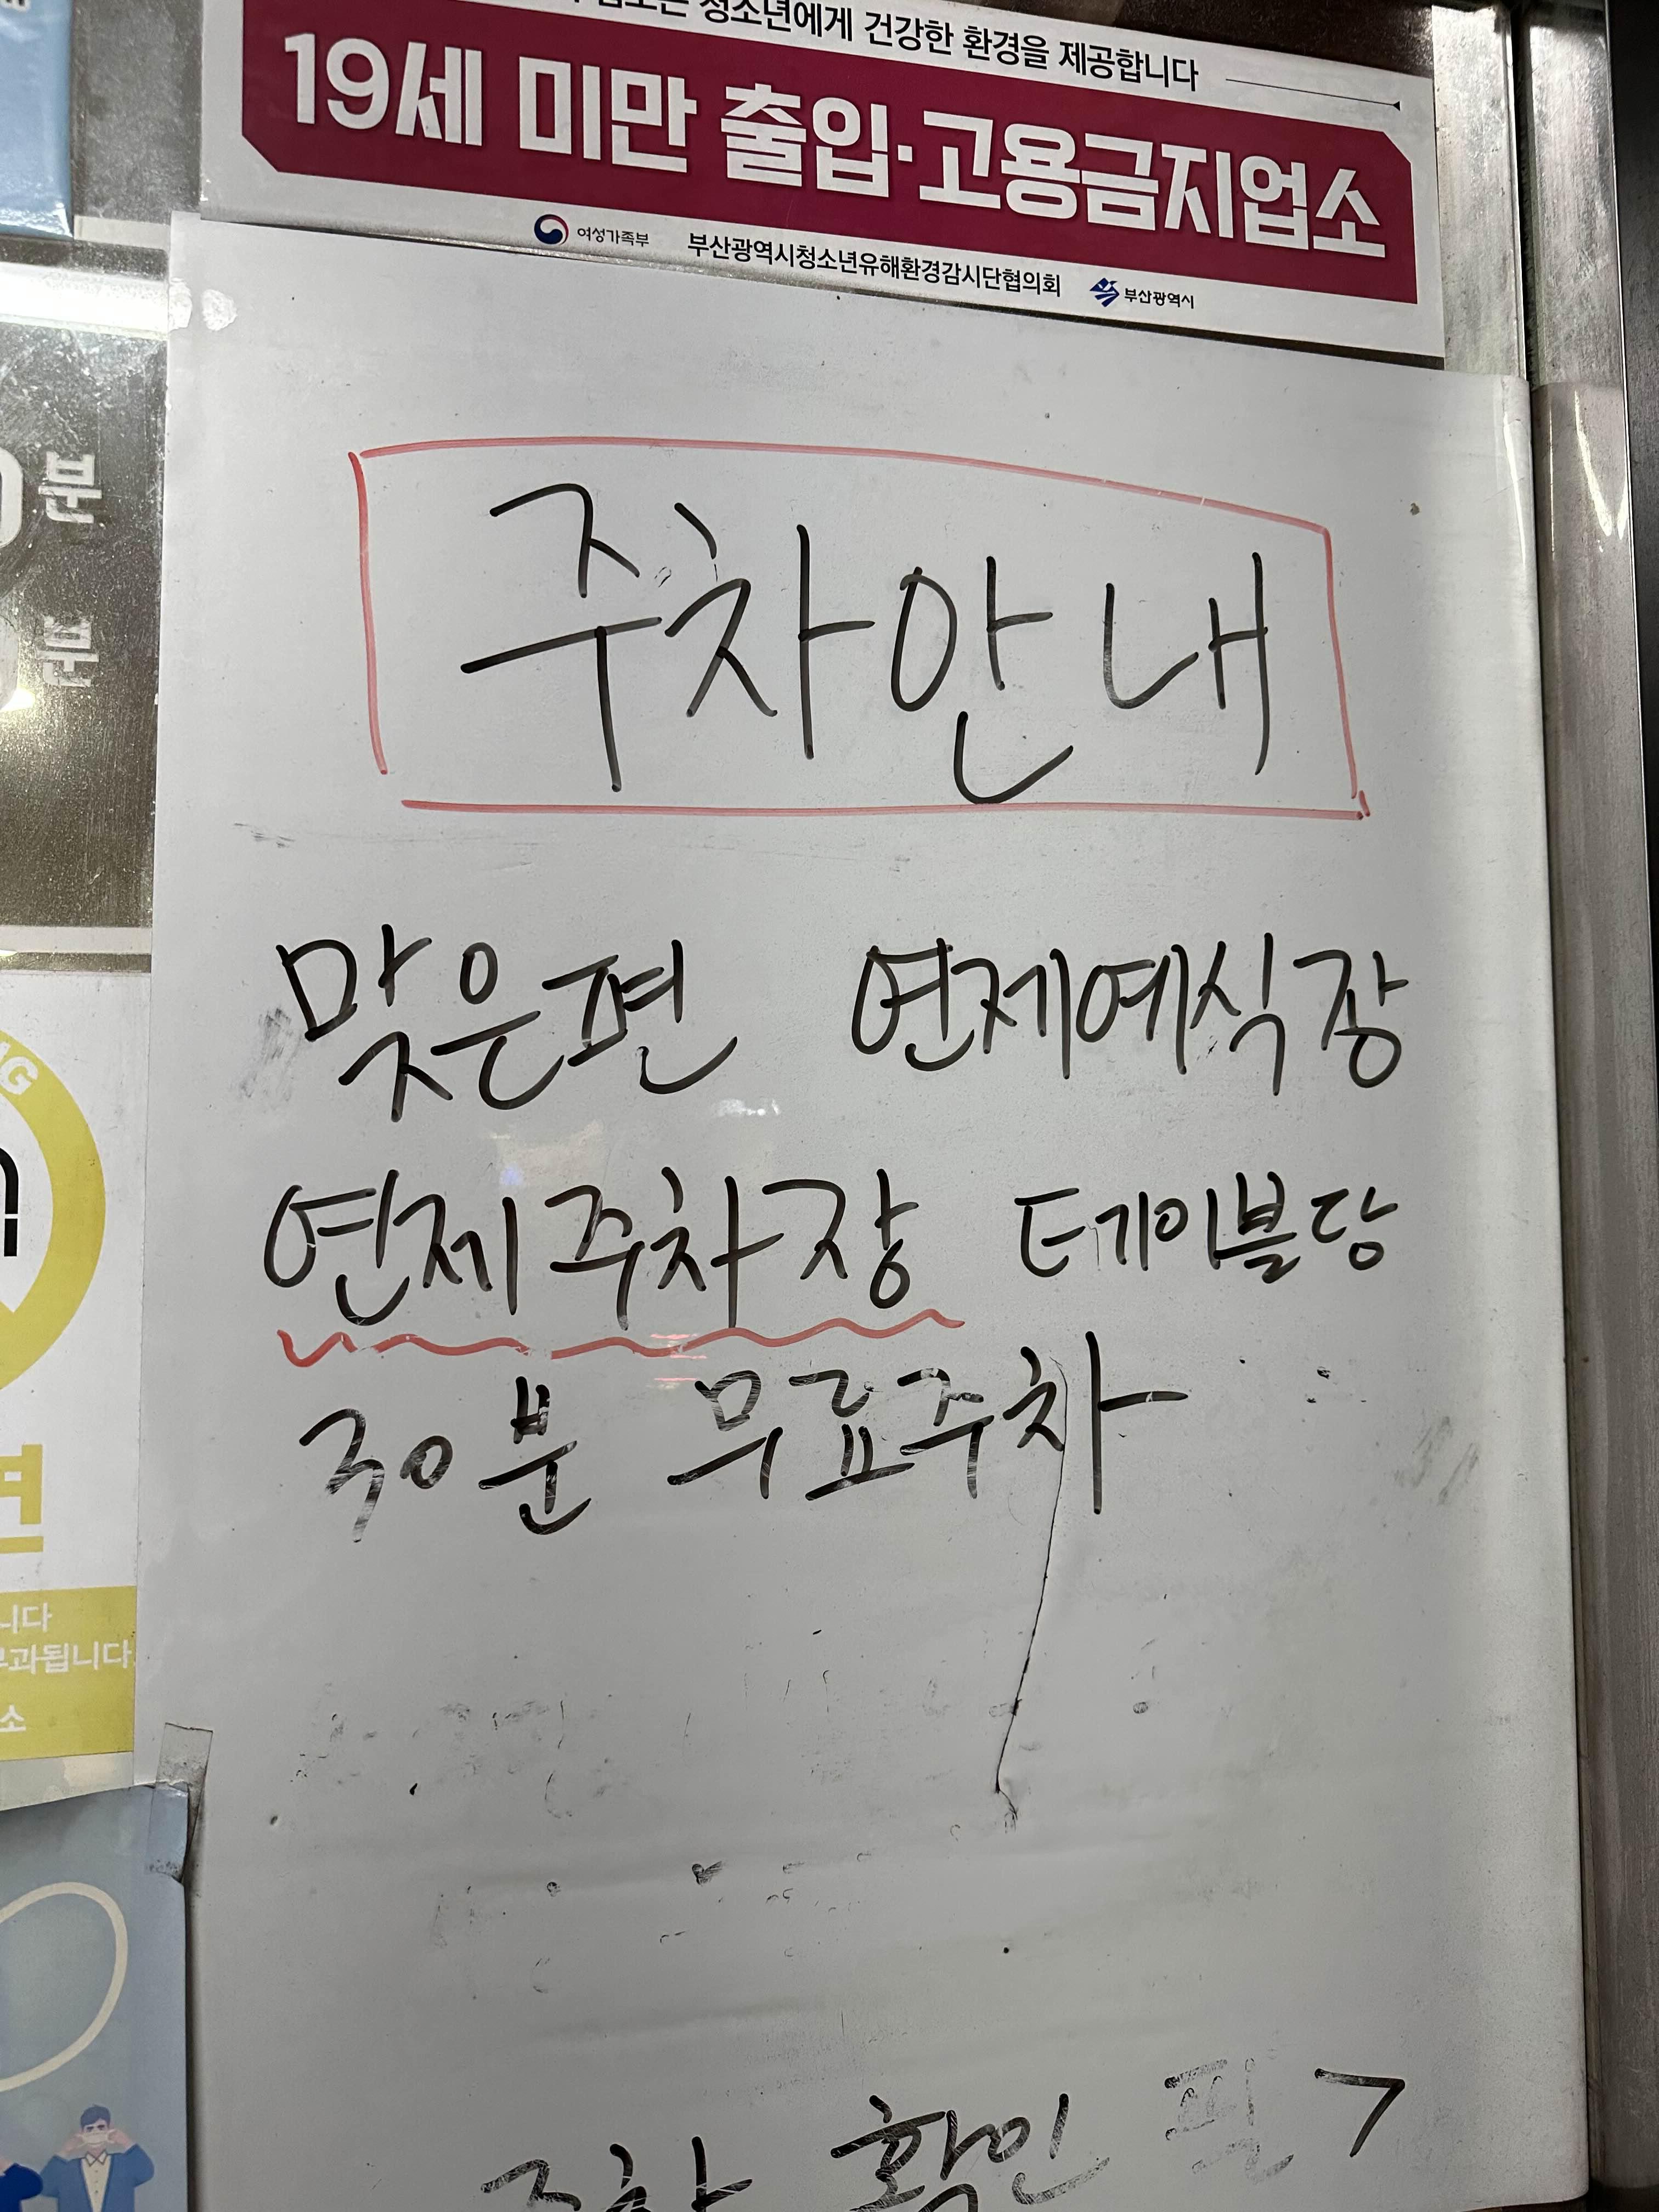 청소년에게 건강한 환경을 제공합니다
19세 미만 출입·고용금지업소
여성가족부 부산광역시청소년유해환경감시단협의회 부산광역시
분
분
주차안내
맞은편 연제예식장
연제주차장 테이블당
30분 무료주차
니다
부과됩니다
소
주차 확인 필